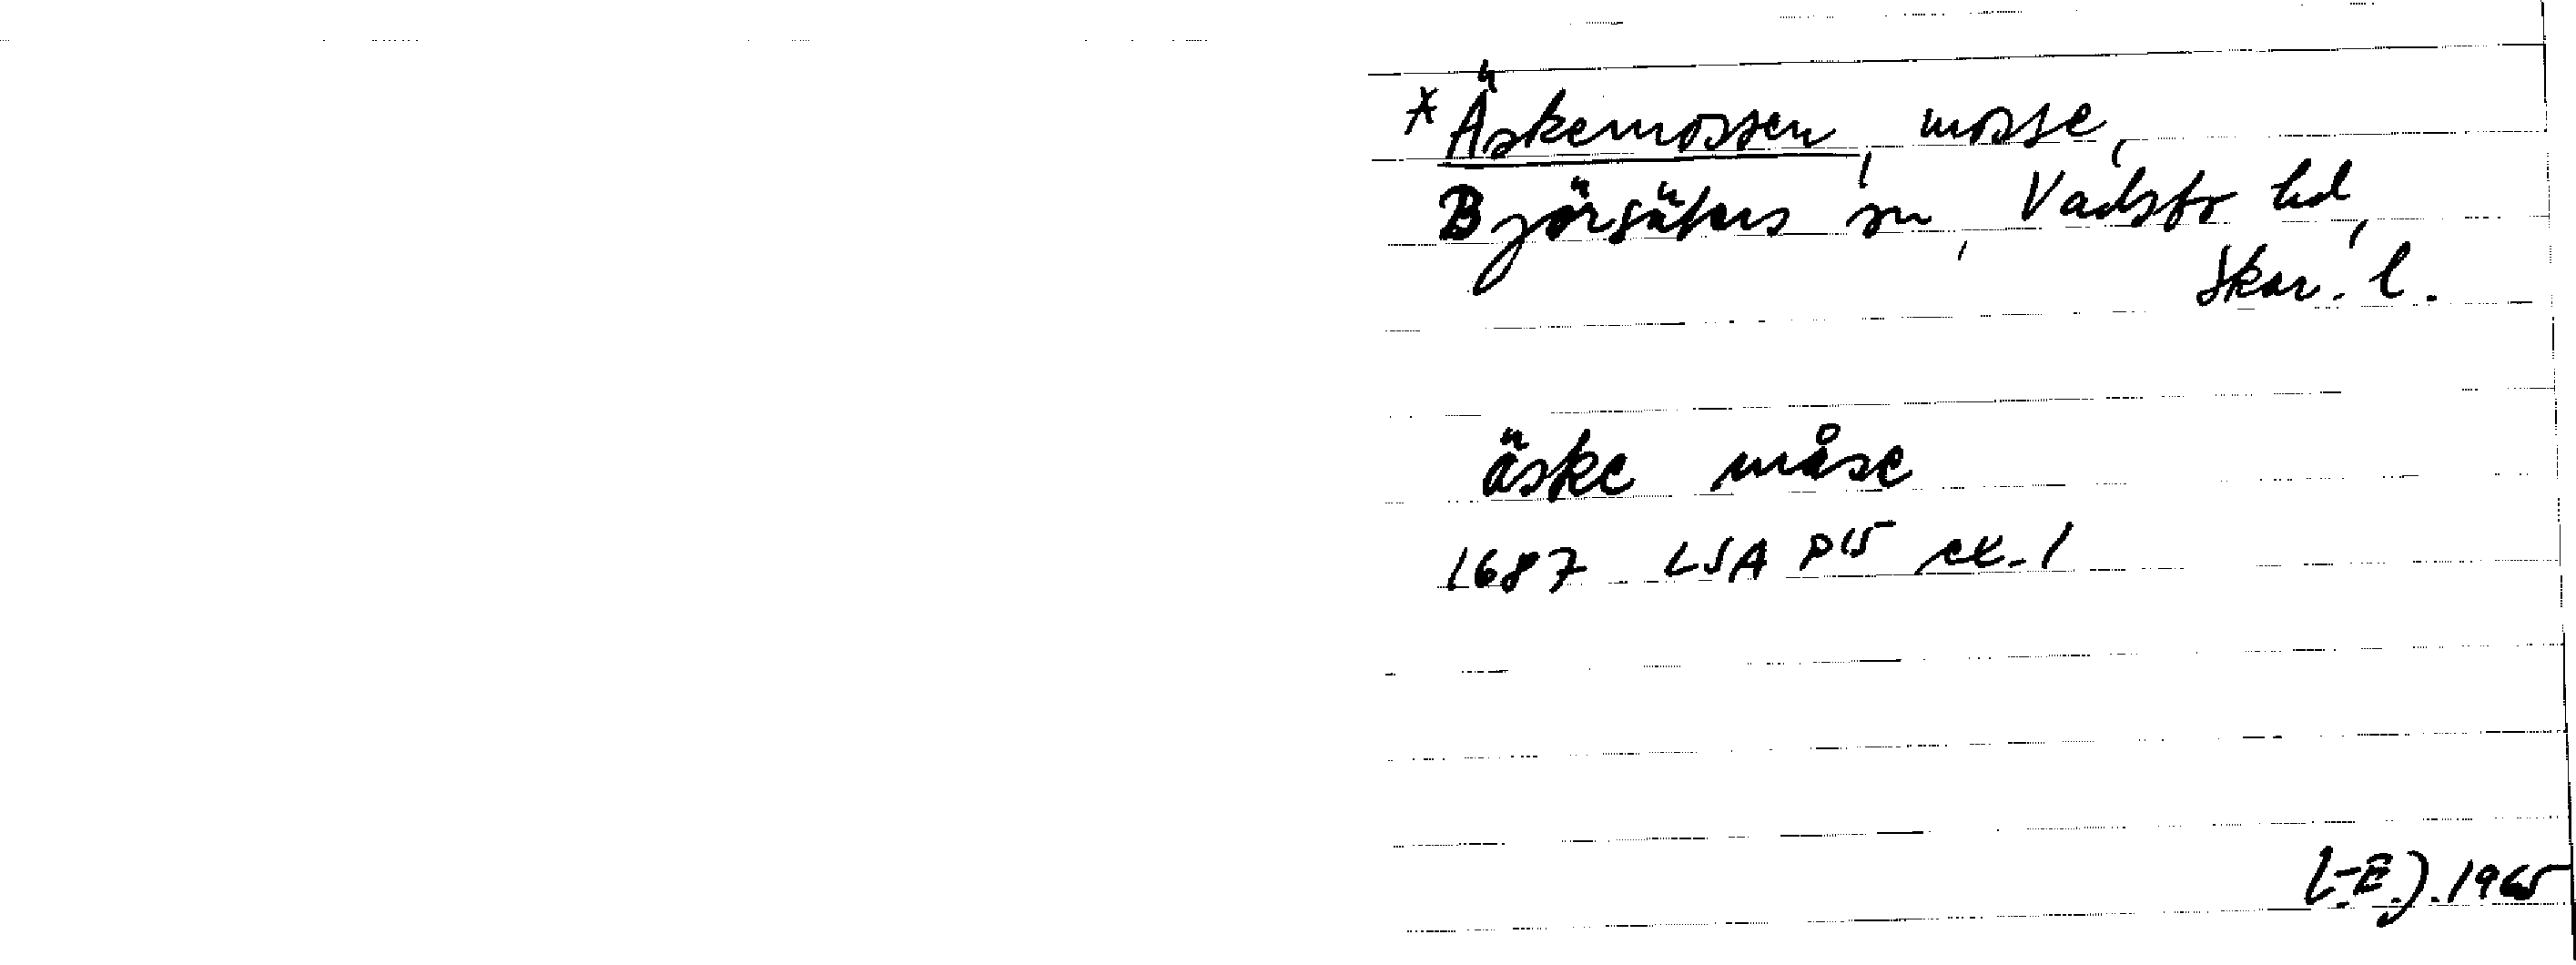 *Äskemossen, mosse,
Björsäters sn, Vadsbo hd,
Skar. l.
äske måse
1687 LSA P15 ak. 1
L-E. J. 1965